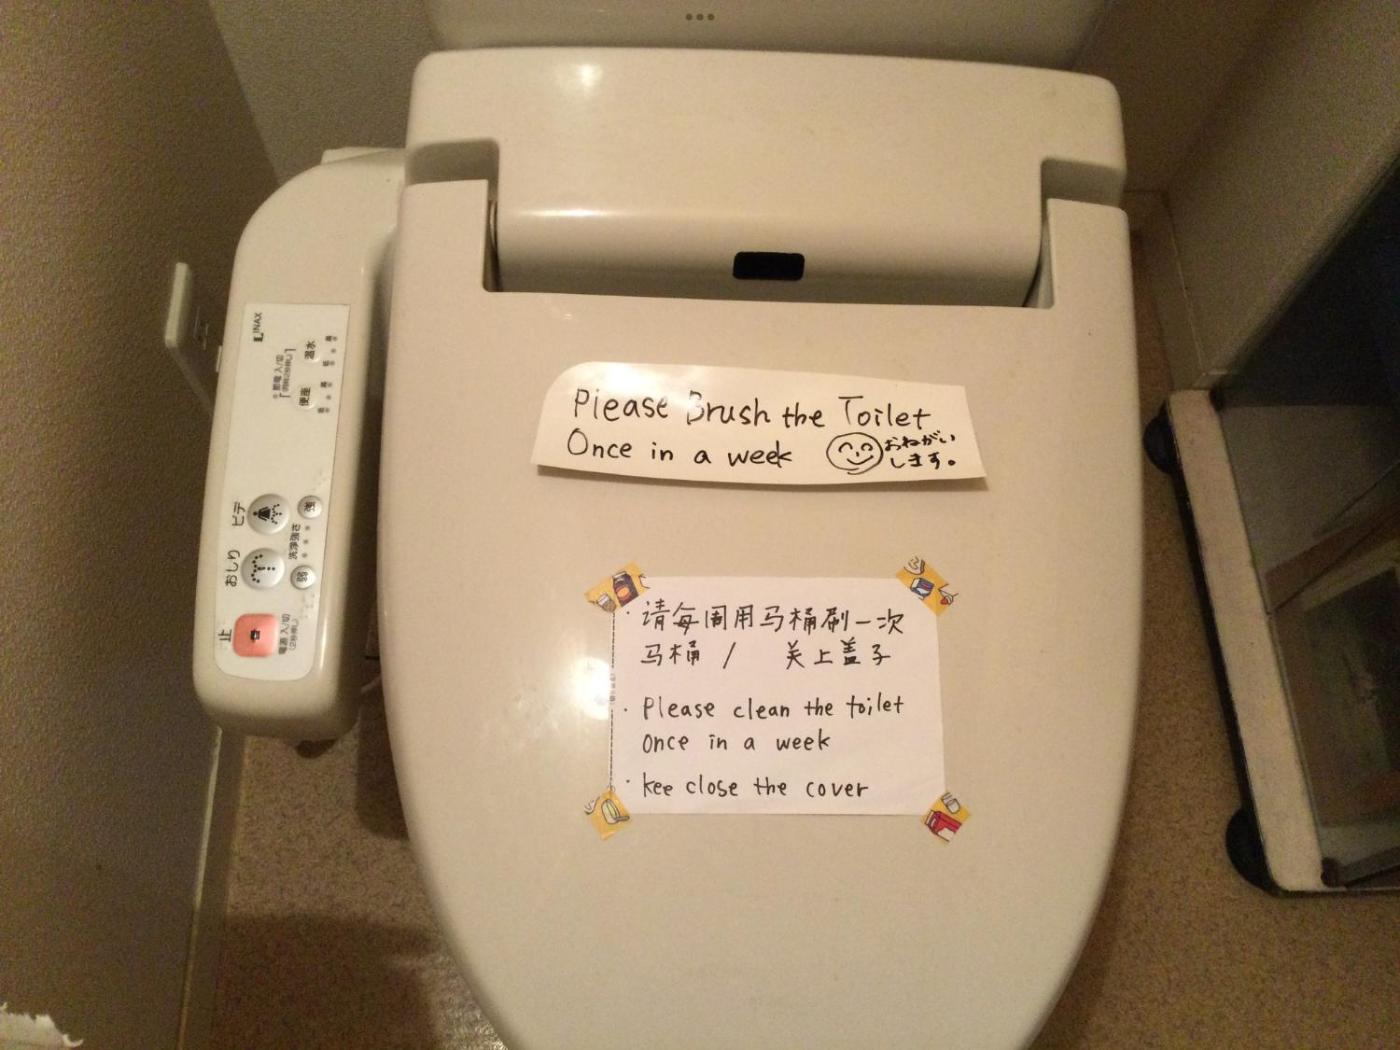 Please Brush the Toilet
Once in a week
おねがい
します。
・请每周用马桶刷一次
马桶 / 关上盖子
・Please clean the toilet
Once in a week
・kee close the cover
INAX
温水
便座
ビデ
おしり
強
洗浄強さ
弱
止
電源 入/切